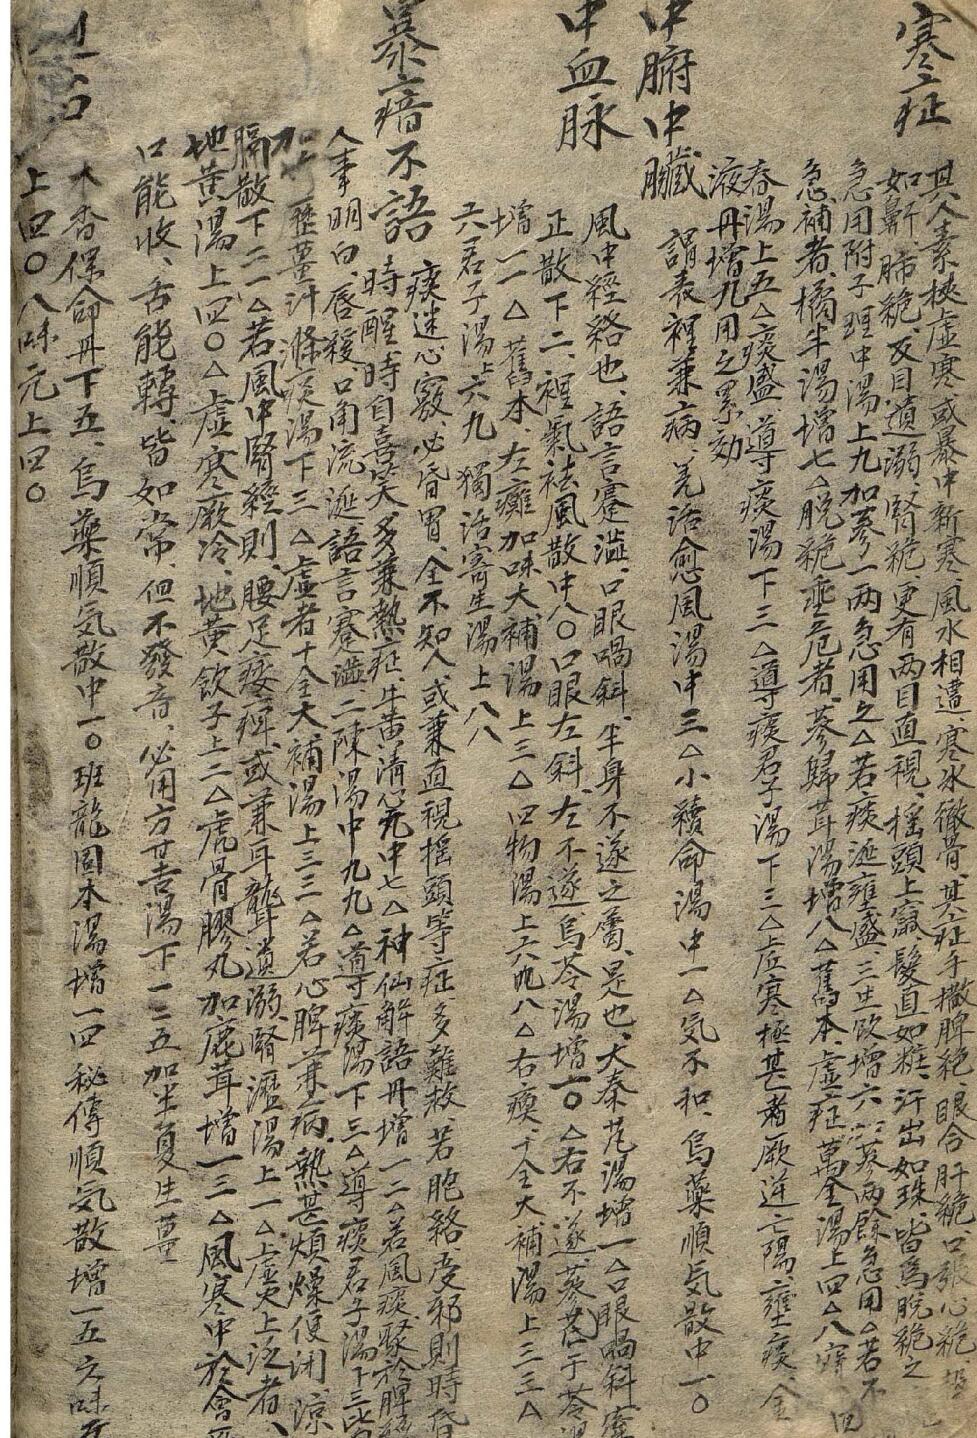 寒症
其人素挾虛寒、或暴中新寒、風水相遭、寒冰徹骨、其症手撒脾絶、眼合肝絶、口張心絶
如鼾、肺絶、及目、遺溺、腎絶、更有両目直視、搖頭上竄、髮直如粧、汗出如珠、皆爲脫絶之
急用附子理中湯上九加參一両急用之△若痰涎壅盛、三生飲增六 參両餘急用△若不
急補者、橘半湯增七△脫絶垂危者、參歸茸湯增八△舊本、虛症萬金湯上四△八
春湯上五△痰盛、導痰湯下三△導痰君子湯下三△虛寒極甚者厥逆亡陽、壅痰、金
液丹增九用之累効
中腑中臟 謂表裡兼病、羌活愈風湯中三△小續命湯中一△気不和、烏藥順気散中一〇
中血脉
風中經絡也、語言蹇澁、口眼喎斜、半身不遂之屬、是也、大秦艽湯增一△口眼喎斜
正散下二、裡氣祛風散中八〇口眼左斜、左不遂、烏苓湯增一〇△若不遂、蔘茋于苓湯
增一一△舊本、左癱、加味大補湯上三△四物湯上六九八△右瘓、十全大補湯上三三△
六君子湯上六九 獨活寄生湯上八八
暴瘖不語 痰迷心竅、必昏冒、全不知人、或兼直視搖頭等症、多難救、若胞絡受邪則時昏
時醒、時自喜笑、多兼熱症、牛黄淸心丸中七△神仙解語丹增一二△若風痰聚於脾經
人事明白、唇緩、口角流涎、語言蹇澁、二陳湯中九九△導痰湯下三△導痰君子湯下三
加竹瀝薑汁滌痰湯下三△虛者十全大補湯上三三△若心脾兼病、熱甚煩燥便閉、涼
膈散下二一△若風中腎經則、腰足痿痺、或兼耳聾遺溺、腎瀝湯上一△虛火上泛者、
地黃湯上四〇△虛寒厥冷、地黃飲子上二△虎骨膠丸加鹿茸增一三△風寒中於會厭
口能收、舌能轉、皆如常、但不發音、必用方甘吉湯下一二五加半夏生薑
木香保命丹下五、烏藥順気散中一〇班龍固本湯增一四秘傳順気散增一五六味
上四〇八味元上四〇